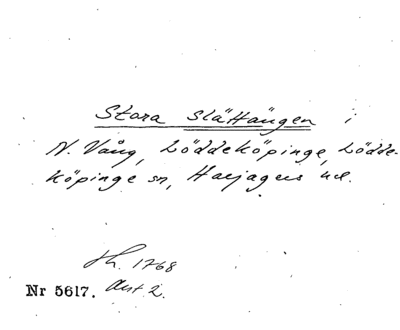 Stora Slättängen i
N. Vång, Löddeköpinge, Lödde-
köpinge sn, Harjagers hd.
Sk. 1768
Nr 5617. Akt 2.